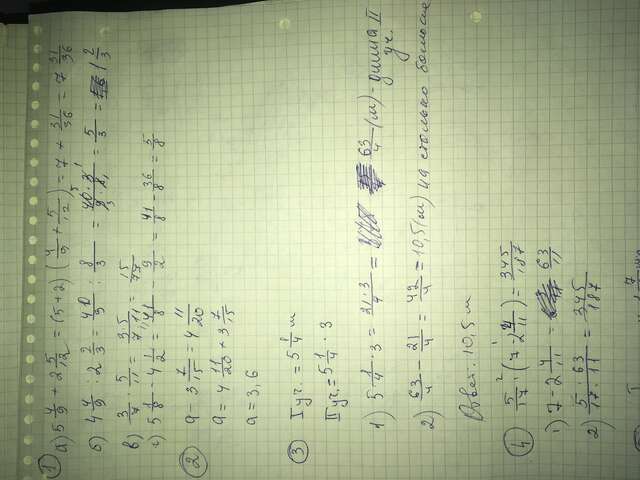 1 а) 5 4/9 + 2 5/12 = (5+2) (4/9 + 5/12) = 7 + 31/36 = 7 31/36
б) 4 4/9 : 2 2/3 = 40/9 : 8/3 = 40·3/9·8 = 5/3 = 1 2/3
в) 3/7 · 5/11 = 3·5/7·11 = 15/77
г) 5 1/8 - 4 1/2 = 41/8 - 9/2 = 41/8 - 36/8 = 5/8
2 a - 3 7/15 = 4 11/20
a = 4 11/20 + 3 7/15
a = 3,6
3 I уч. = 5 1/4 м
II уч. = 5 1/4 · 3
1) 5 1/4 · 3 = 21·3/4 = 63/4 (м) - длина II
уч.
2) 63/4 - 21/4 = 42/4 = 10,5 (м) на столько больше
Ответ. 10,5 м
4 5/17 · (7 - 2 4/11) = 345/187
1) 7 - 2 4/11 = 63/11
2) 5·63/17·11 = 345/187